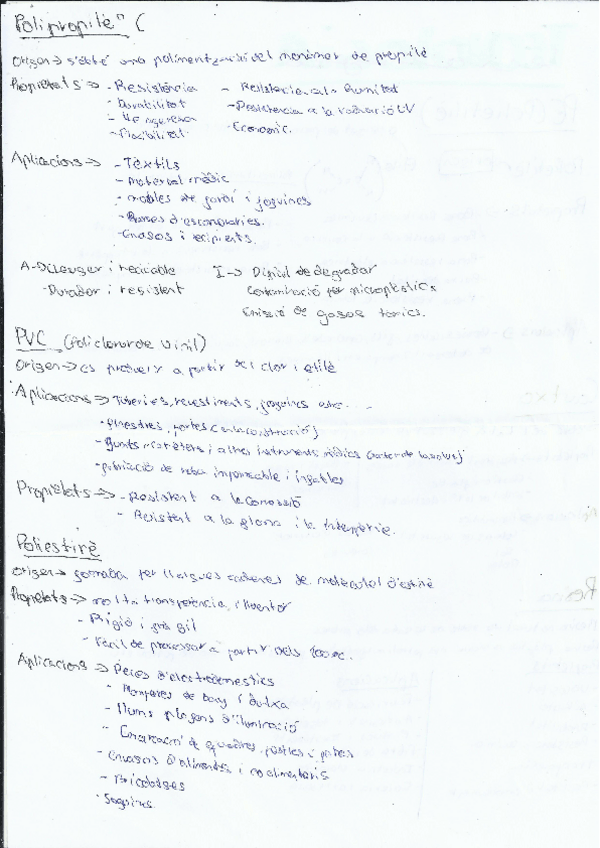 Polipropilè" (
Origen→ s'obté una polimerització del monomer de propilè
Propietats→ - Resistència - Resistencia a la humitat
- Durabilitat - Resistencia a la radiació UV
- Lleugeresa - Econòmic.
- Flexibilitat
Aplicacions→ - Tèxtils
- Material mèdic
- mobles de jardí i joguines
- Peces d'escombraries.
- Envasos i recipients.
A→ Lleuger i reciclable I→ Difícil de degradar
- Durador i resistent Contaminació per microplàstics
Emissió de gasos tòxics.
PVC (Policlorur de vinil)
Origen→ es produeix a partir del clor i etilè
Aplicacions→ Tuberies, revestiments, joguines
- finestres, portes (en la construcció)
- guants, catèters i altres instruments mèdics
- fabricació de roba impermeable i inflables
Propietats→ - Resistent a la corrosió
- Resistent a la flama i la intempèrie.
Poliestirè
Origen→ formada per llargues cadenes de molècules d'estirè
Propietats→ molta transparència, i lluentor
- Rígid i fràgil
- Fàcil de processar a partir dels
Aplicacions→ Peces d'electrodomèstics
- Mampares de bany i dutxa
- Llums, plafons d'il·luminació
- de quadres, portes i
- Envasos d'aliments i no alimentaris
- Bricolatges
- Joguines